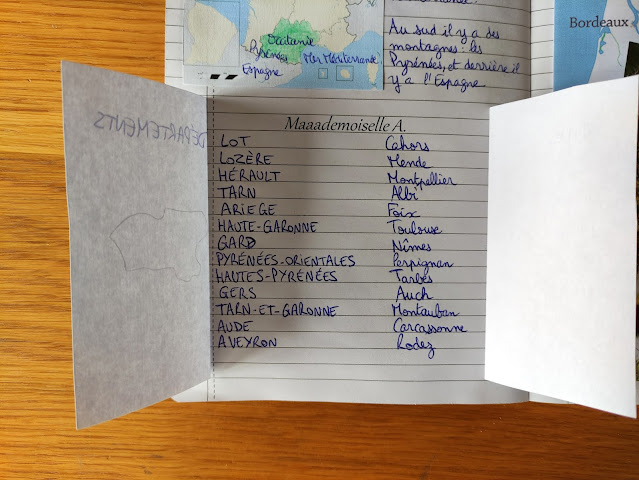 Occitanie
Pyrénées
Mer Méditerranée
Espagne
Au sud il y a des
montagnes : les
Pyrénées, et derrière il
y a l'Espagne
Bordeaux
DÉPARTEMENTS
Maaademoiselle A.
LOT Cahors
LOZÈRE Mende
HÉRAULT Montpellier
TARN Albi
ARIEGE Foix
HAUTE-GARONNE Toulouse
GARD Nîmes
PYRÉNÉES-ORIENTALES Perpignan
HAUTES-PYRÉNÉES Tarbes
GERS Auch
TARN-ET-GARONNE Montauban
AUDE Carcassonne
AVEYRON Rodez